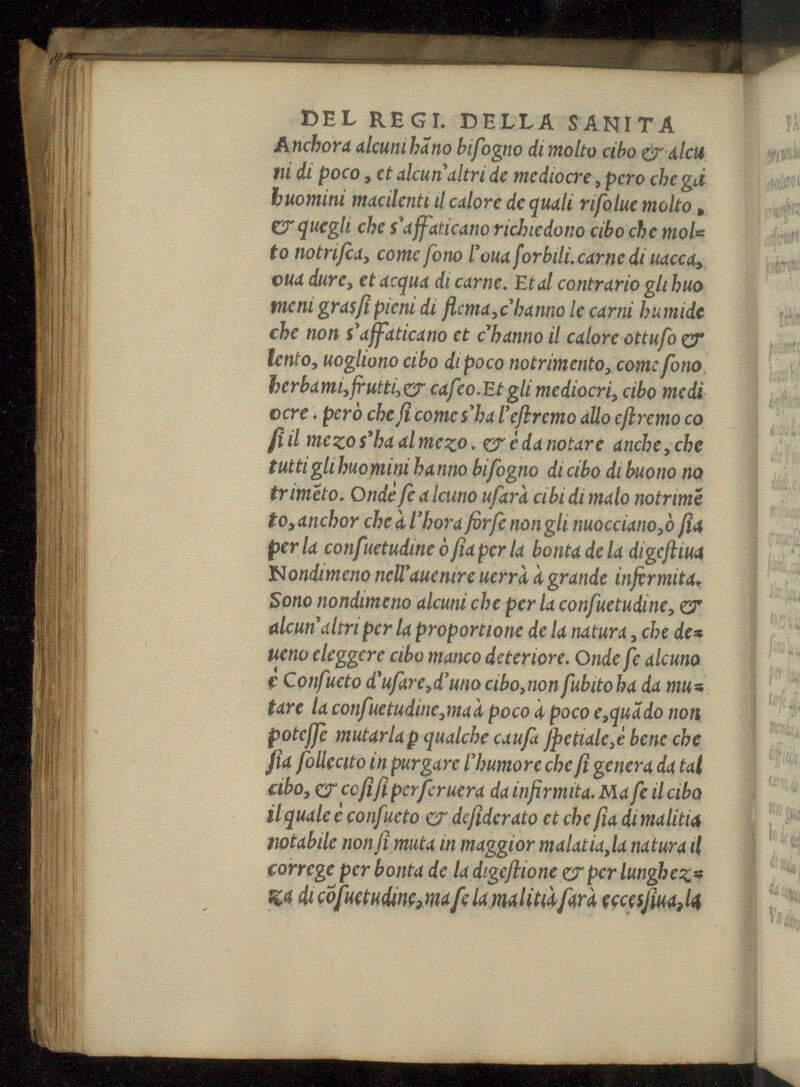 DEL REGI. DELLA SANITA
Anchora alcuni hãno biſogno di molto cibo & alcu
ni di poco, et alcun'altri de mediocre, pero che gli
huomini macilenti il calore de quali riſolue molto,
& quegli che s'affaticano richiedono cibo che mol=
to notriſca, come ſono l'oua ſorbili.carne di uacca,
oua dure, et acqua di carne. Et al contrario gli huo
meni grasſi pieni di flema,c'hanno le carni humide
che non s'affaticano et c'hanno il calore ottuſo &
lento, uogliono cibo di poco notrimento, come ſono
herbami,frutti,& caſeo.Et gli mediocri, cibo medi
ocre. però che ſi come s'ha l'eſtremo allo eſtremo co
ſi il mezo s'ha al mezo. & è da notare anche, che
tutti gli huomini hanno biſogno di cibo di buono no
trimẽto. Onde ſe alcuno uſarà cibi di malo notrimẽ
to,anchor che à l'hora forſe non gli nuocciano,ò ſia
per la conſuetudine ò ſia per la bonta de la digeſtiua
Nondimeno nell'auenire uerrà à grande infermita.
Sono nondimeno alcuni che per la conſuetudine, &
alcun'altri per la proportione de la natura, che de=
ueno eleggere cibo manco deteriore. Onde ſe alcuno
è Conſueto d'uſare,d'uno cibo,non ſubito ha da mu=
tare la conſuetudine,ma à poco à poco e,quãdo non
poteſſe mutarla p qualche cauſa ſpetiale,è bene che
ſia ſollecito in purgare l'humore che ſi genera da tal
cibo, & coſi ſi perſeruera da infirmita. Ma ſe il cibo
il quale è conſueto & deſiderato et che ſia di malitia
notabile non ſi muta in maggior malatia,la natura il
correge per bonta de la digeſtione & per lunghez=
za di cõſuetudine,ma ſe la malitia ſarà eccesſiua,la